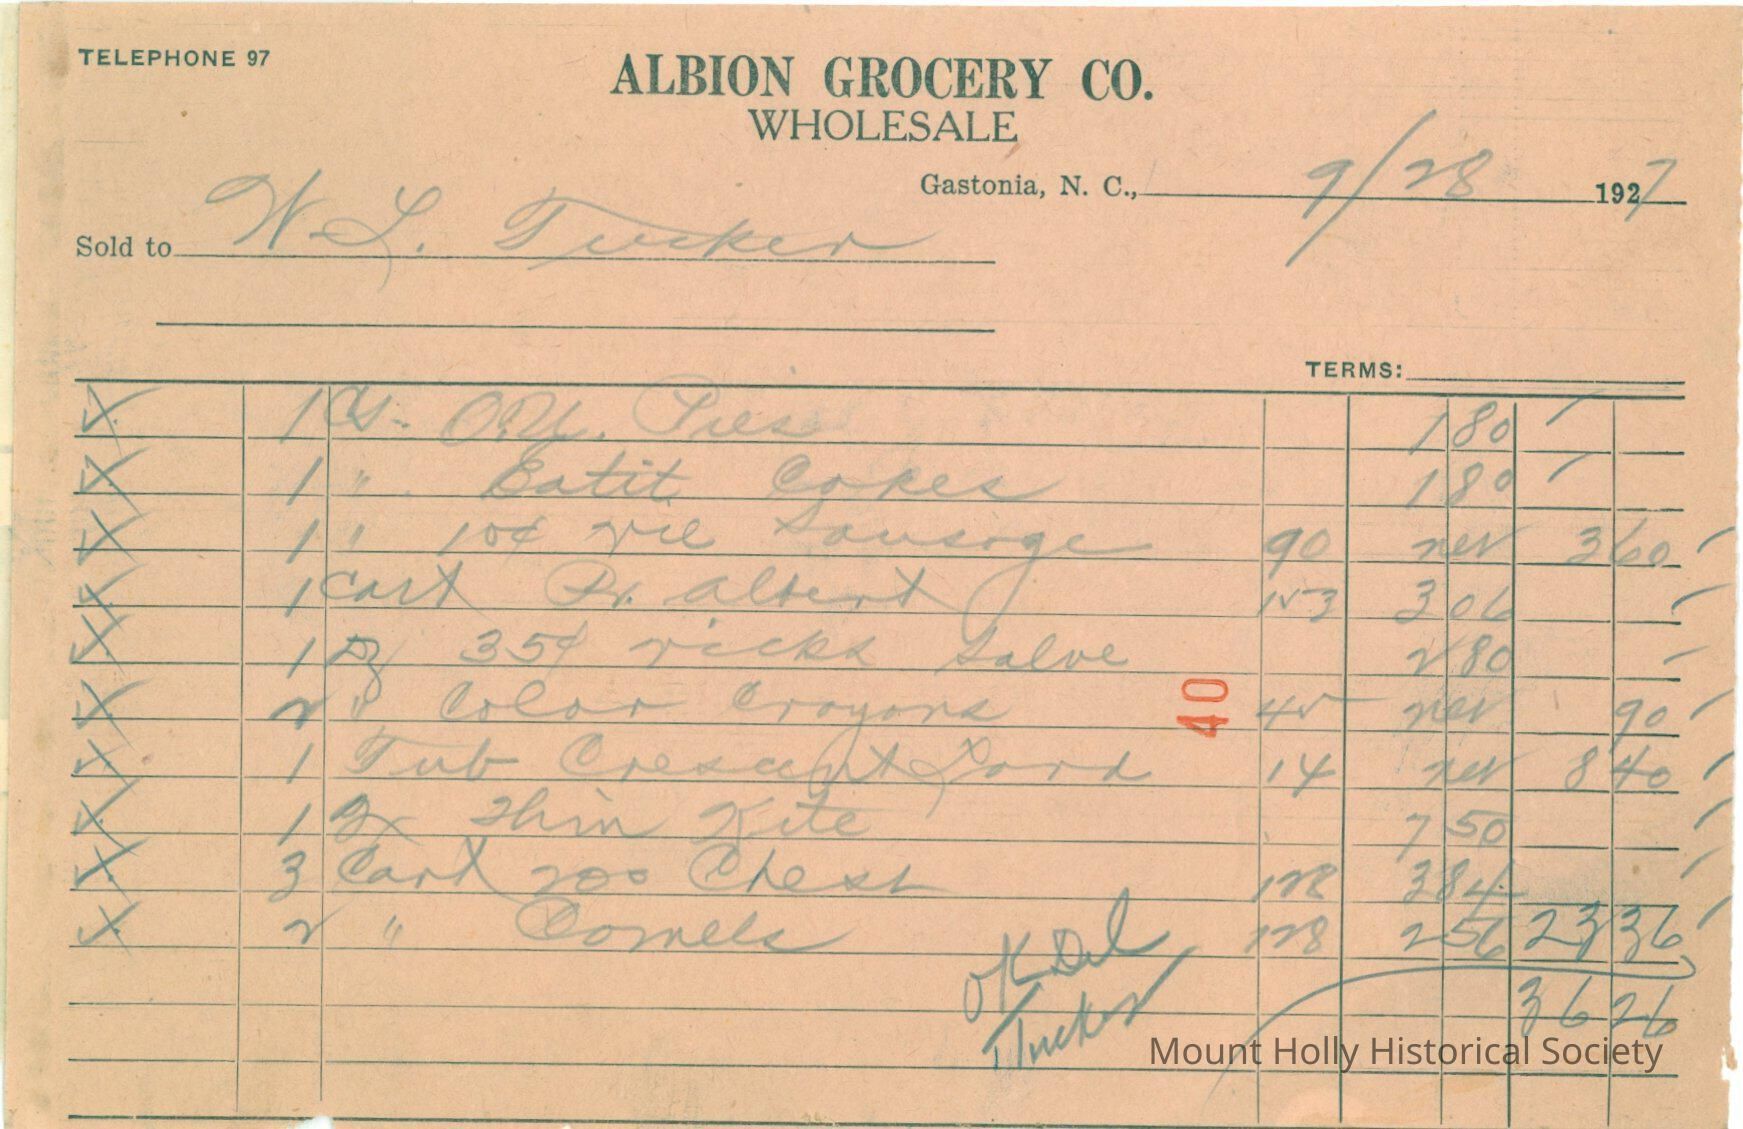 TELEPHONE 97
ALBION GROCERY CO.
WHOLESALE
Gastonia, N. C., 9/28 1927
Sold to W. L. Tucker
TERMS:
1 Cs. O.U. Pies 1 80
1 " Eatit Cakes 1 80
1 " 10¢ Vie Sausage 90 net 3 60
1 Cart Pr. Albert 153 3 06
1 Dz 35¢ Vicks Salve 2 80
2 " Color Crayons 45 net 90
40
1 Tub Crescent Lard 14 net 8 40
1 Thin Kite 7 50
3 Cart 200 Chest 128 3 84
2 " Camels 128 2 56 23 36
36 26
OK Del
Tucker
Mount Holly Historical Society